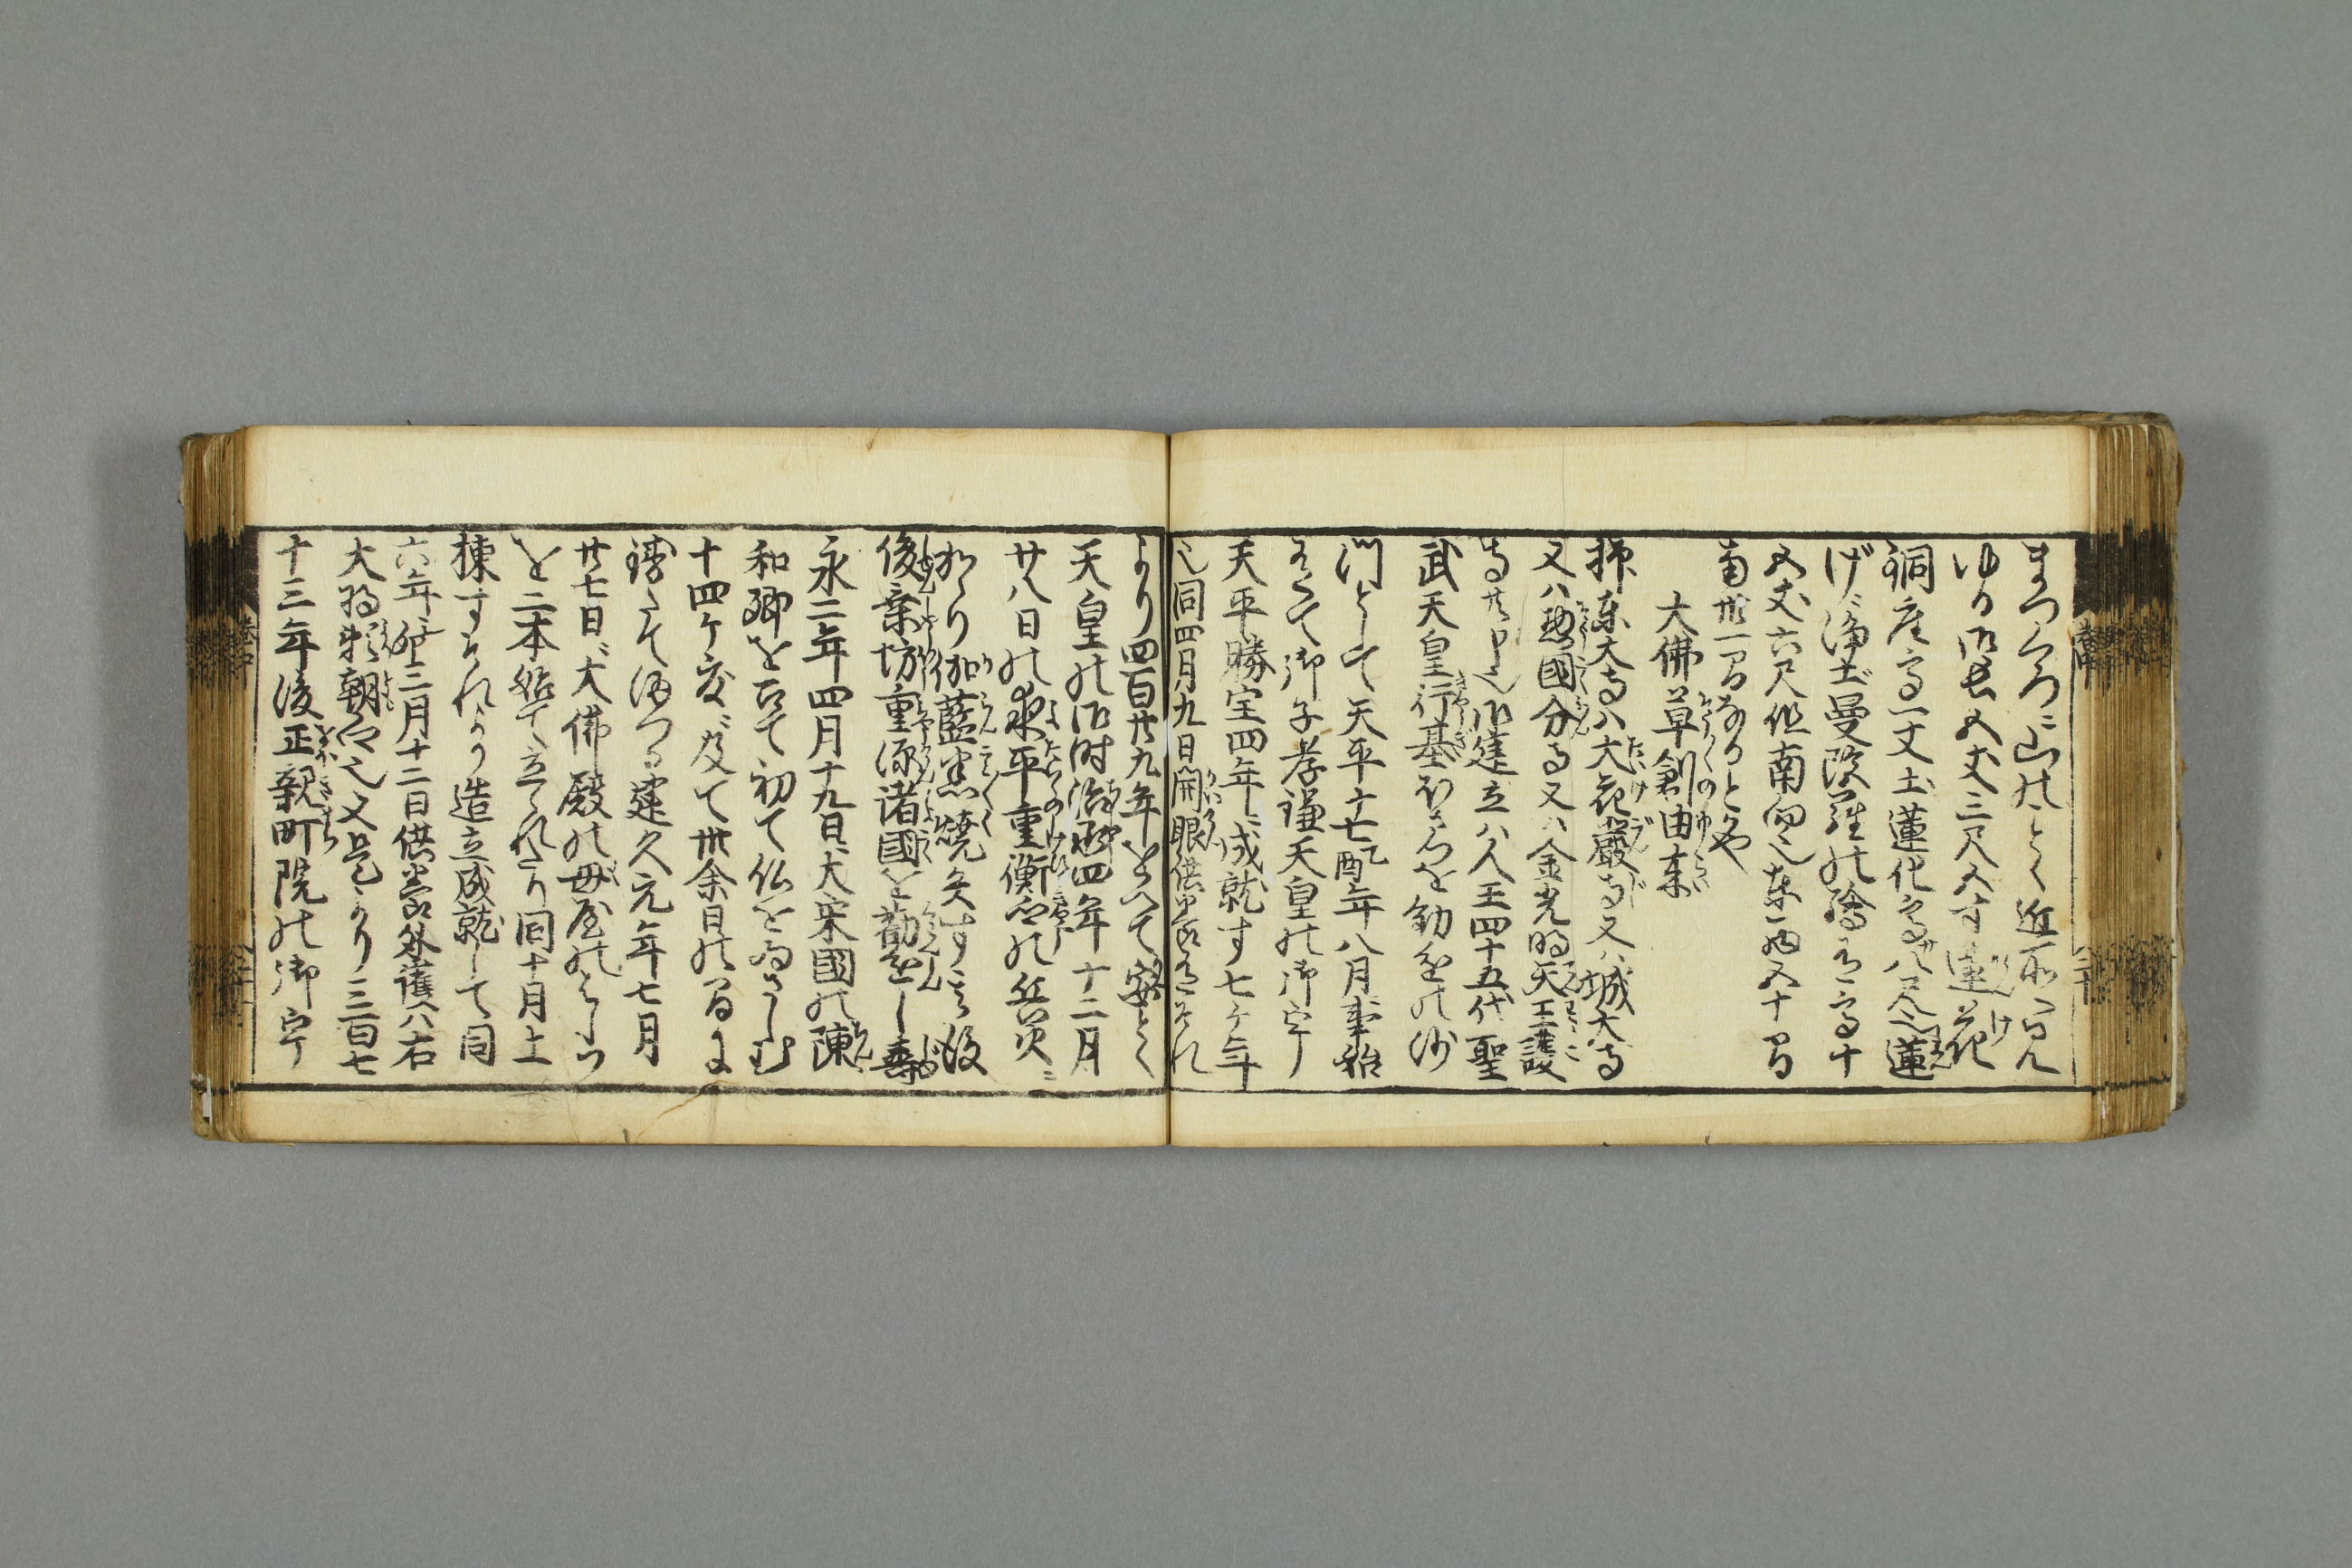 ゆる御長五丈三尺五寸蓮花
銅座高一丈土蓮花高八尺也蓮
げに浄土曼陀羅の絵有高十
五丈六尺但南向也東西五十間
南卅一間なるとかや
大佛草創由来
抑東大寺ハ大花嚴寺又ハ城大寺
又ハ惣國分寺又ハ金光明天王護
寺共申也御建立ハ人王四十五代聖
武天皇行基ぼさつを勧進の沙
門として天平十七乙酉年八月事始
有て御子孝謙天皇の御宇
天平勝宝四年に成就す七ケ年
也同四月九日開眼供養有それ
より四百廿九年をへて安とく
天皇の御時治承四年十二月
廿八日の夜平重衡卿の兵火に
かゝり伽藍悉焼失す其後
俊乗坊重源諸國を勧進し壽
永二年四月十九日に大宋國の陳
和卿を召て初て仏をゐさしむ
十四ケ度に及て卅余日の間に
鋳たて給つる建久元年七月
廿七日に大佛殿の母屋のはしら
を二本始て立られたり同十月上
棟すそれより造立成就して同
六年三月十二日供養外護ハ右
大将頼朝公也又是より三百七
十三年後正親町院の御宇
巻中